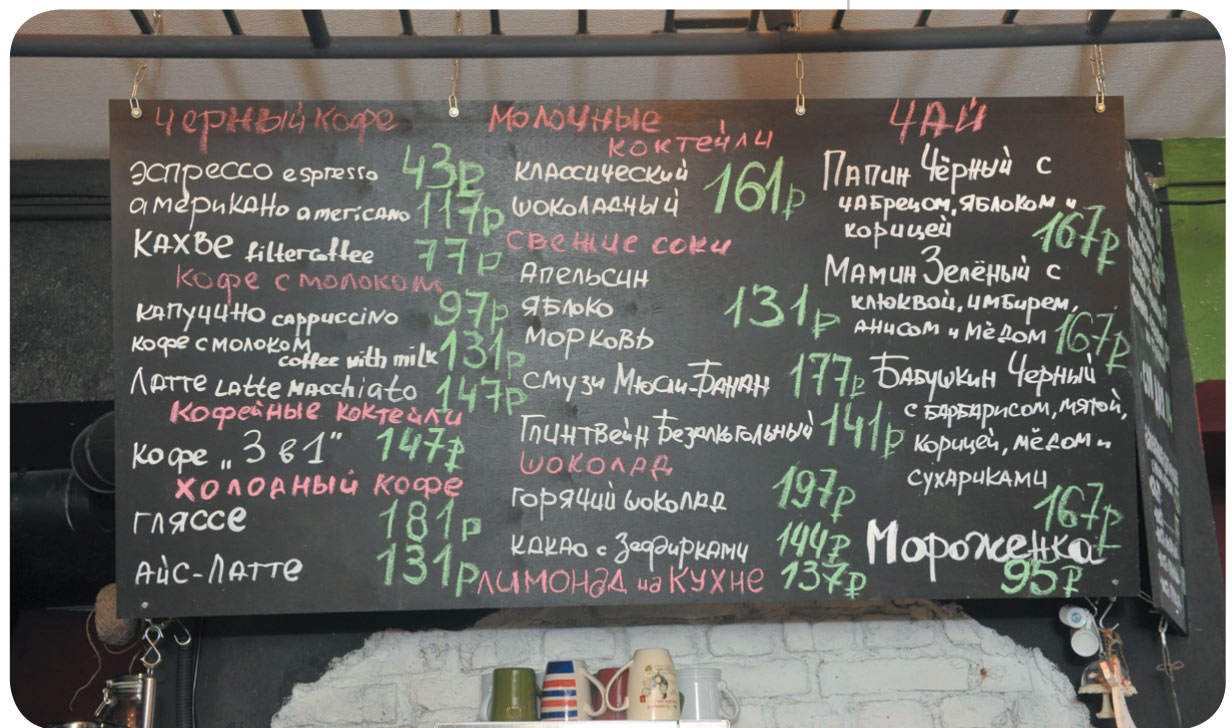 Черный кофе
эспрессо espresso 43₽
американо americano 117₽
Кахве filtercoffee 77₽
Кофе с молоком
капучино cappuccino 97₽
кофе с молоком
coffee with milk 131₽
Латте Latte macchiato 147₽
Кофейные коктейли
Кофе „3 в 1" 147₽
холодный кофе
гляссе 181₽
Айс-Латте 131₽
Молочные
коктейли
классический
шоколадный 161₽
свежие соки
Апельсин
яблоко 131₽
морковь
смузи Мюсли-Банан 177₽
Глинтвейн Безалкогольный 141₽
шоколад
горячий шоколад 197₽
какао с Зефирками 144₽
Лимонад на кухне 137₽
Чай
Папин Чёрный с
чабрецом, яблоком и
корицей 167₽
Мамин Зелёный с
клюквой, имбирем,
анисом и мёдом 167₽
Бабушкин Черный
с барбарисом, мятой,
корицей, мёдом и
сухариками
167₽
Мороженка
95₽